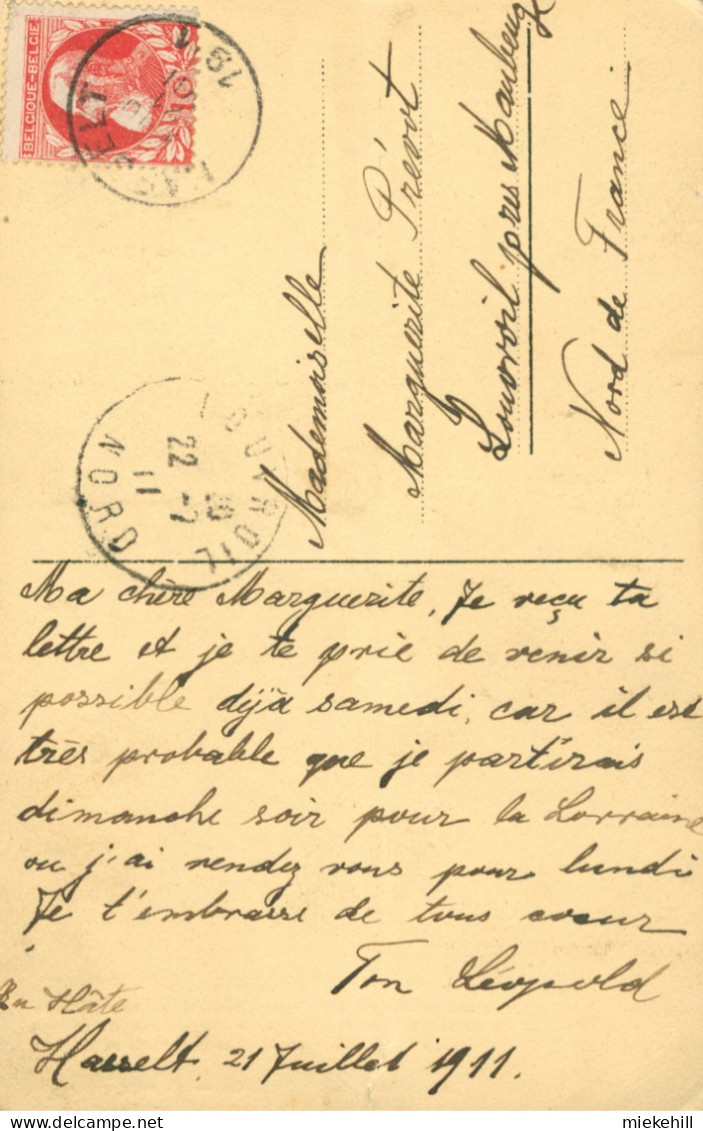 BELGIQUE-BELGIE
Mademoiselle
Marguerite Prévot
Louvroil près Maubeuge
Nord de France
LOUVROIL
22 -7
11
NORD
Ma chère Marguerite, Je reçu ta
lettre et je te prie de venir si
possible dèja samedi, car il est
très probable que je partirais
dimanche soir pour la Lorraine
ou j'ai rendez vous pour lundi
Je t'embrasse de tous coeur
Ton Léopold
En Hâte
Hasselt, 21 Juillet 1911.
miekehill